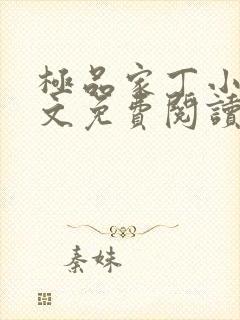 極品家丁小
文免費閱讀
秦妹